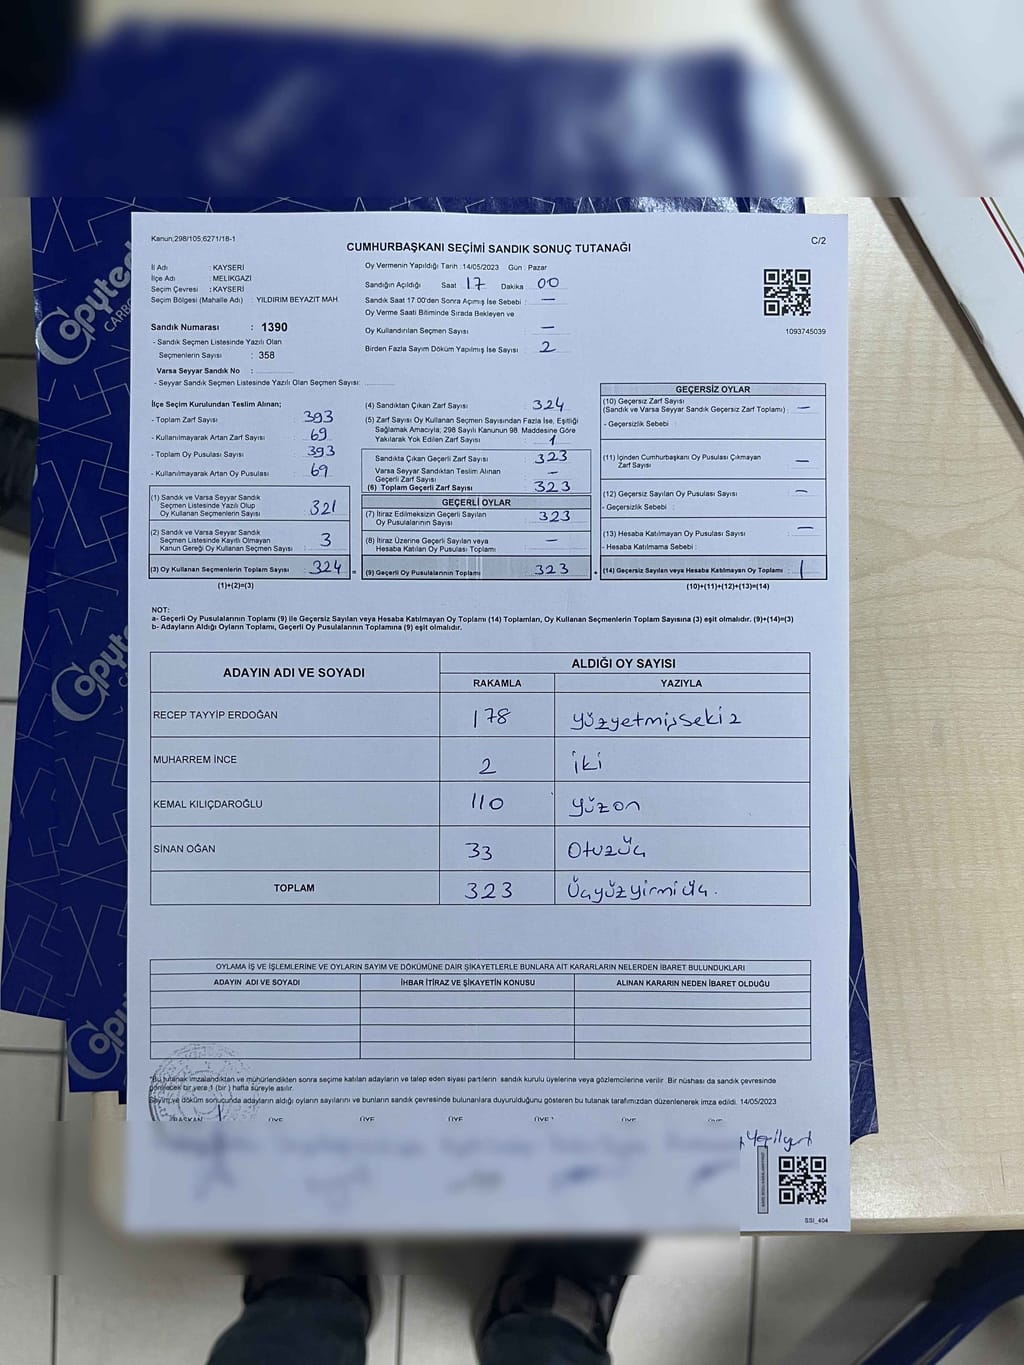 Kanun;298/105;6271/18-1
C/2
CUMHURBAŞKANI SEÇİMİ SANDIK SONUÇ TUTANAĞI
İl Adı : KAYSERİ
İlçe Adı : MELİKGAZİ
Seçim Çevresi : KAYSERİ
Seçim Bölgesi (Mahalle Adı) : YILDIRIM BEYAZIT MAH
Sandık Numarası : 1390
- Sandık Seçmen Listesinde Yazılı Olan
Seçmenlerin Sayısı : 358
Varsa Seyyar Sandık No :
- Seyyar Sandık Seçmen Listesinde Yazılı Olan Seçmen Sayısı:
Oy Vermenin Yapıldığı Tarih :14/05/2023 Gün : Pazar
Sandığın Açıldığı Saat 17 Dakika 00
Sandık Saat 17:00'den Sonra Açımış İse Sebebi : —
Oy Verme Saati Bitiminde Sırada Bekleyen ve
Oy Kullandırılan Seçmen Sayısı : —
Birden Fazla Sayım Döküm Yapılmış İse Sayısı : 2
1093745039
İlçe Seçim Kurulundan Teslim Alınan;
- Toplam Zarf Sayısı : 393
- Kullanılmayarak Artan Zarf Sayısı : 69
- Toplam Oy Pusulası Sayısı : 393
- Kullanılmayarak Artan Oy Pusulası : 69
(1) Sandık ve Varsa Seyyar Sandık
Seçmen Listesinde Yazılı Olup
Oy Kullanan Seçmenlerin Sayısı : 321
(2) Sandık ve Varsa Seyyar Sandık
Seçmen Listesinde Kayıtlı Olmayan
Kanun Gereği Oy Kullanan Seçmen Sayısı : 3
(3) Oy Kullanan Seçmenlerin Toplam Sayısı : 324
(1)+(2)=(3)
(4) Sandıktan Çıkan Zarf Sayısı : 324
(5) Zarf Sayısı Oy Kullanan Seçmen Sayısından Fazla İse, Eşitliği
Sağlamak Amacıyla; 298 Sayılı Kanunun 98. Maddesine Göre
Yakılarak Yok Edilen Zarf Sayısı : 1
Sandıkta Çıkan Geçerli Zarf Sayısı : 323
Varsa Seyyar Sandıktan Teslim Alınan
Geçerli Zarf Sayısı : —
(6) Toplam Geçerli Zarf Sayısı : 323
GEÇERLİ OYLAR
(7) İtiraz Edilmeksizin Geçerli Sayılan
Oy Pusulalarının Sayısı : 323
(8) İtiraz Üzerine Geçerli Sayılan veya
Hesaba Katılan Oy Pusulası Toplamı : —
(9) Geçerli Oy Pusulalarının Toplamı : 323
GEÇERSİZ OYLAR
(10) Geçersiz Zarf Sayısı
(Sandık ve Varsa Seyyar Sandık Geçersiz Zarf Toplamı) : —
- Geçersizlik Sebebi :
(11) İçinden Cumhurbaşkanı Oy Pusulası Çıkmayan
Zarf Sayısı : —
(12) Geçersiz Sayılan Oy Pusulası Sayısı : —
- Geçersizlik Sebebi :
(13) Hesaba Katılmayan Oy Pusulası Sayısı : —
- Hesaba Katılmama Sebebi :
(14) Geçersiz Sayılan veya Hesaba Katılmayan Oy Toplamı : 1
(10)+(11)+(12)+(13)=(14)
NOT:
a- Geçerli Oy Pusulalarının Toplamı (9) ile Geçersiz Sayılan veya Hesaba Katılmayan Oy Toplamı (14) Toplamları, Oy Kullanan Seçmenlerin Toplam Sayısına (3) eşit olmalıdır. (9)+(14)=(3)
b- Adayların Aldığı Oyların Toplamı, Geçerli Oy Pusulalarının Toplamına (9) eşit olmalıdır.
ADAYIN ADI VE SOYADI
ALDIĞI OY SAYISI
RAKAMLA YAZIYLA
RECEP TAYYİP ERDOĞAN 178 yüzyetmişsekiz
MUHARREM İNCE 2 iki
KEMAL KILIÇDAROĞLU 110 yüzon
SİNAN OĞAN 33 Otuzüç
TOPLAM 323 Üçyüzyirmiüç.
OYLAMA İŞ VE İŞLEMLERİNE VE OYLARIN SAYIM VE DÖKÜMÜNE DAİR ŞİKAYETLERLE BUNLARA AİT KARARLARIN NELERDEN İBARET BULUNDUKLARI
ADAYIN ADI VE SOYADI İHBAR İTİRAZ VE ŞİKAYETİN KONUSU ALINAN KARARIN NEDEN İBARET OLDUĞU
*Bu tutanak imzalandıktan ve mühürlendikten sonra seçime katılan adayların ve talep eden siyasi partilerin sandık kurulu üyelerine veya gözlemcilerine verilir. Bir nüshası da sandık çevresinde
görülecek bir yere 1 (bir ) hafta süreyle asılır.
Sayım ve döküm sonucunda adayların aldığı oyların sayılarını ve bunların sandık çevresinde bulunanlara duyurulduğunu gösteren bu tutanak tarafımızdan düzenlenerek imza edildi. 14/05/2023
BAŞKAN ÜYE ÜYE ÜYE ÜYE ÜYE ÜYE
SSI_404
Copytech
CARBO
Copyt
CA
Copy